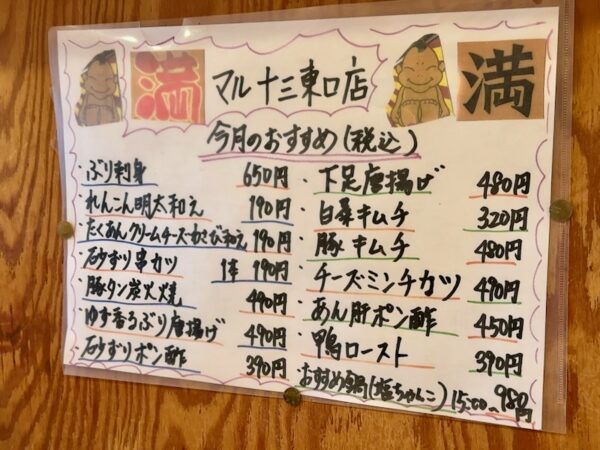 満 マル十三東口店 満
今月のおすすめ(税込)
・ぶり刺身 650円
れんこん明太和え 190円
・たくあんクリームチーズわさび和え 190円
・砂ずり串カツ 1本 190円
・豚タン炭火焼 490円
・ゆず香るぶり唐揚げ 490円
・砂ずりポン酢 390円
・下足唐揚げ 480円
・白菜キムチ 320円
・豚キムチ 480円
・チーズミンチカツ 490円
・あん肝ポン酢 450円
・鴨ロースト 390円
・おすすめ鍋(塩ちゃんこ)15:00~ 980円